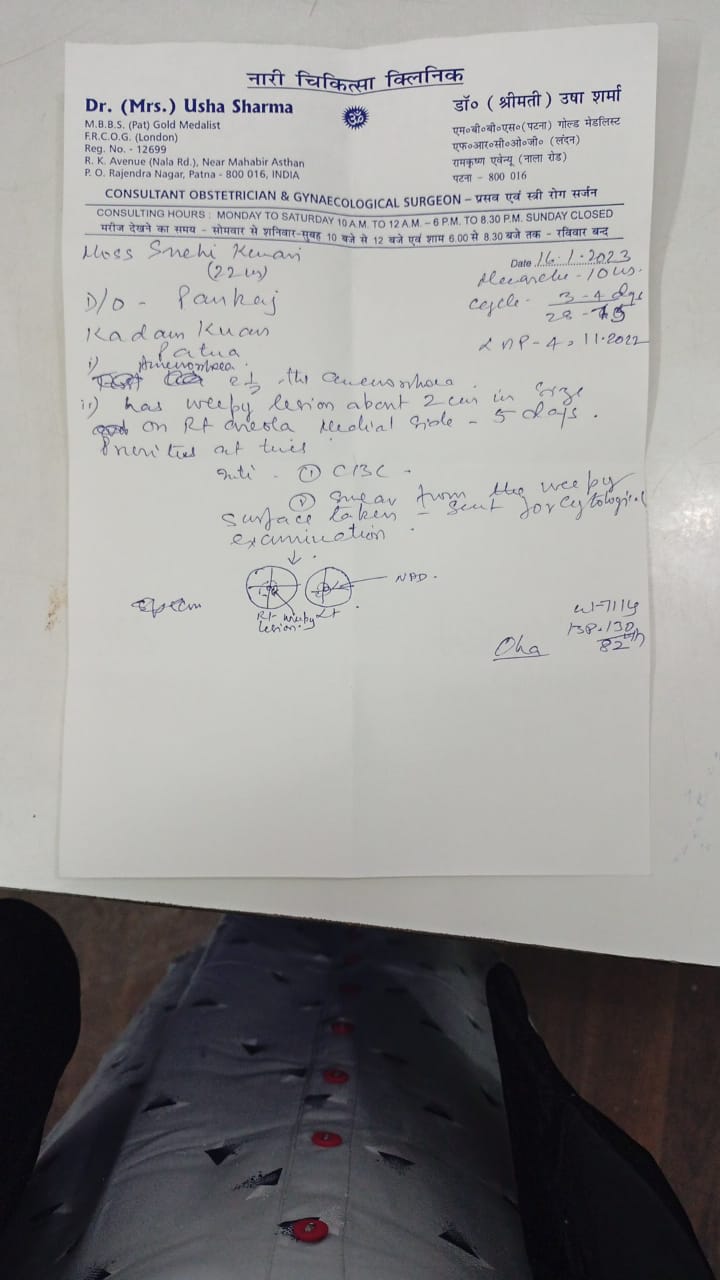 नारी चिकित्सा क्लिनिक
Dr. (Mrs.) Usha Sharma
M.B.B.S. (Pat) Gold Medalist
F.R.C.O.G. (London)
Reg. No. - 12699
R. K. Avenue (Nala Rd.), Near Mahabir Asthan
P. O. Rajendra Nagar, Patna - 800 016, INDIA
ॐ
डॉ० ( श्रीमती ) उषा शर्मा
एम०बी०बी०एस०(पटना) गोल्ड मेडलिस्ट
एफ०आर०सी०ओ०जी० (लंदन)
रामकृष्ण एवेन्यू (नाला रोड)
पटना - 800 016
CONSULTANT OBSTETRICIAN & GYNAECOLOGICAL SURGEON – प्रसव एवं स्त्री रोग सर्जन
CONSULTING HOURS : MONDAY TO SATURDAY 10 A.M. TO 12 A.M. – 6 P.M. TO 8.30 P.M. SUNDAY CLOSED
मरीज देखने का समय - सोमवार से शनिवार-सुबह 10 बजे से 12 बजे एवं शाम 6.00 से 8.30 बजे तक - रविवार बन्द
Miss Snehi Kumari
(22 
Date 16.1.2023
Menarche - 10
D/O - Pankaj
Cycle - 3-4 dys
28-
Kadam Kuan
Patna
LMP - 4.11.2022
i) Amenorrhoea
amenorrhoea.
ii) has weepy lesion about 2 cm in size
on Rt areola medial side - 5 days.
① CBC -
② Smear from the weepy
surface taken - sent for cytological
examination
NAD.
Rt weepy Lt
lesion.
BP. 130
82